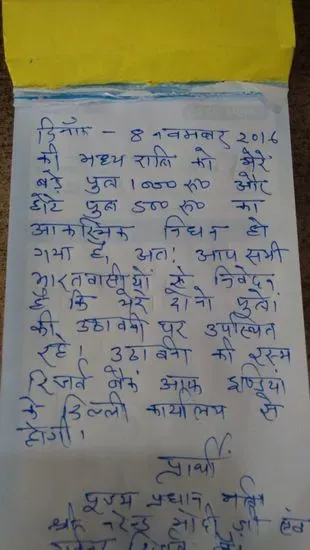 दिनाँक - 8 नवम्बर 2016
की मध्य रात्रि को मेरे
बड़े पुत्र 1000 रू० और
छोटे पुत्र 500 रू० का
आकस्मिक निधन हो
गया है, अतः आप सभी
भारतवासीयों से निवेदन
है कि मेरे दोनो पुत्रों
की उठावनी पर उपस्थित
रहे। उठावनी की रस्म
रिजर्व बैंक आफ इण्डिया
के दिल्ली कार्यालय में
होगी।
प्रार्थी
पूज्य प्रधान मंत्रि
श्री नरेन्द्र मोदी जी एवं